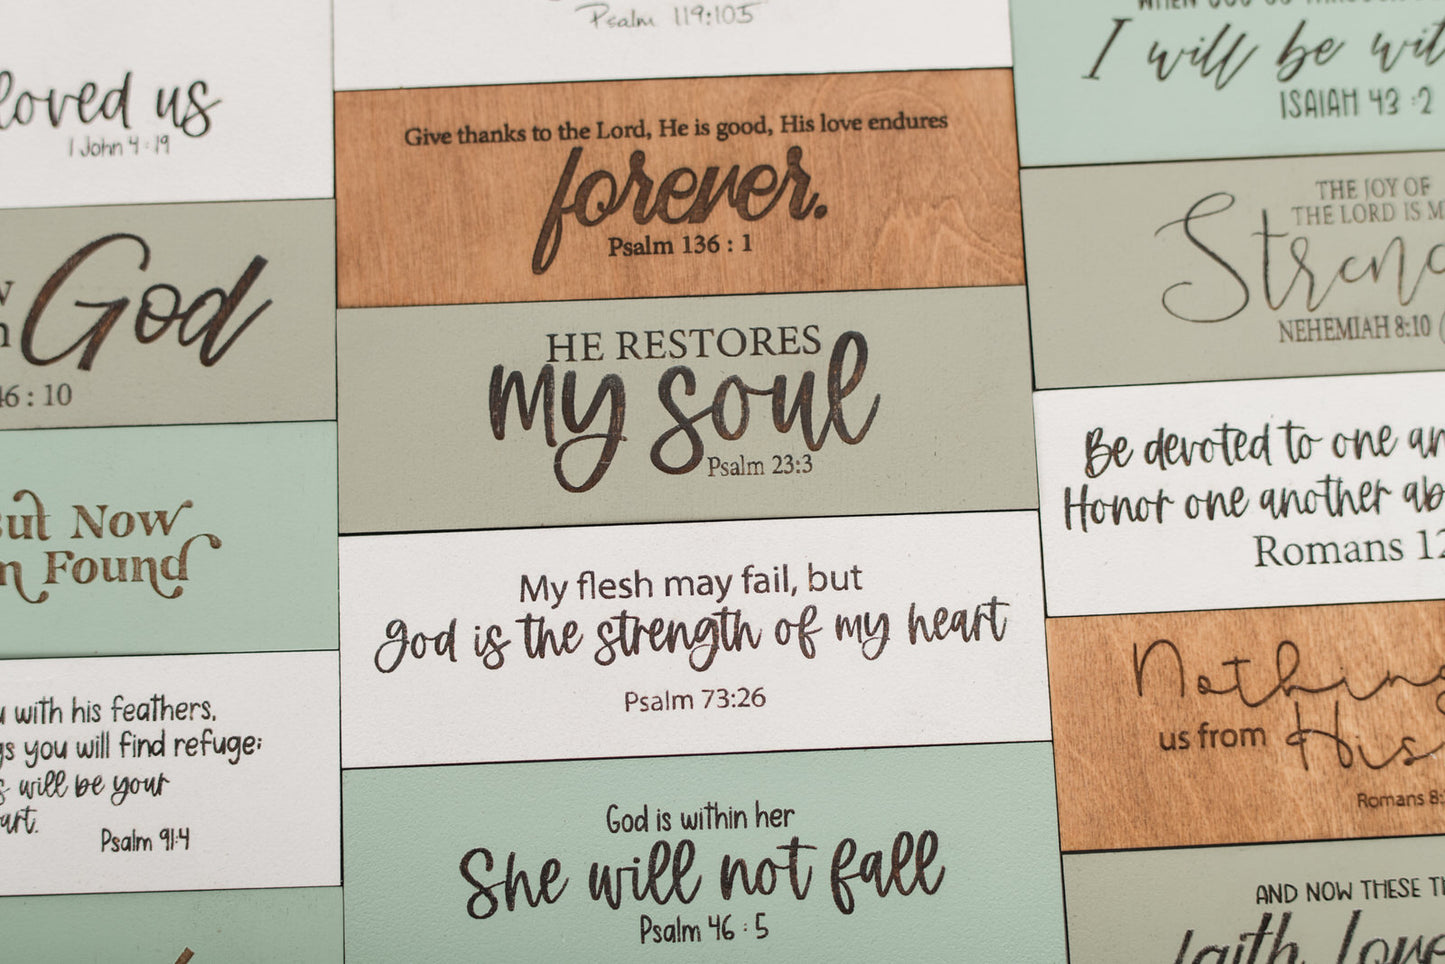 loved us
1 John 4:19
God
46 : 10
But Now
Found
with his feathers,
you will find refuge;
will be your
Psalm 91:4
Psalm 119:105
Give thanks to the Lord, He is good, His love endures
forever.
Psalm 136 : 1
HE RESTORES
my soul
Psalm 23:3
My flesh may fail, but
god is the strength of my heart
Psalm 73:26
God is within her
She will not fall
Psalm 46 : 5
I will be
ISAIAH 43 :2
THE JOY OF
THE LORD IS
Streng
NEHEMIAH 8:10
Be devoted to one
Honor one another
Romans 12
Nothing
us from His
Romans 8:
AND NOW THESE
faith love